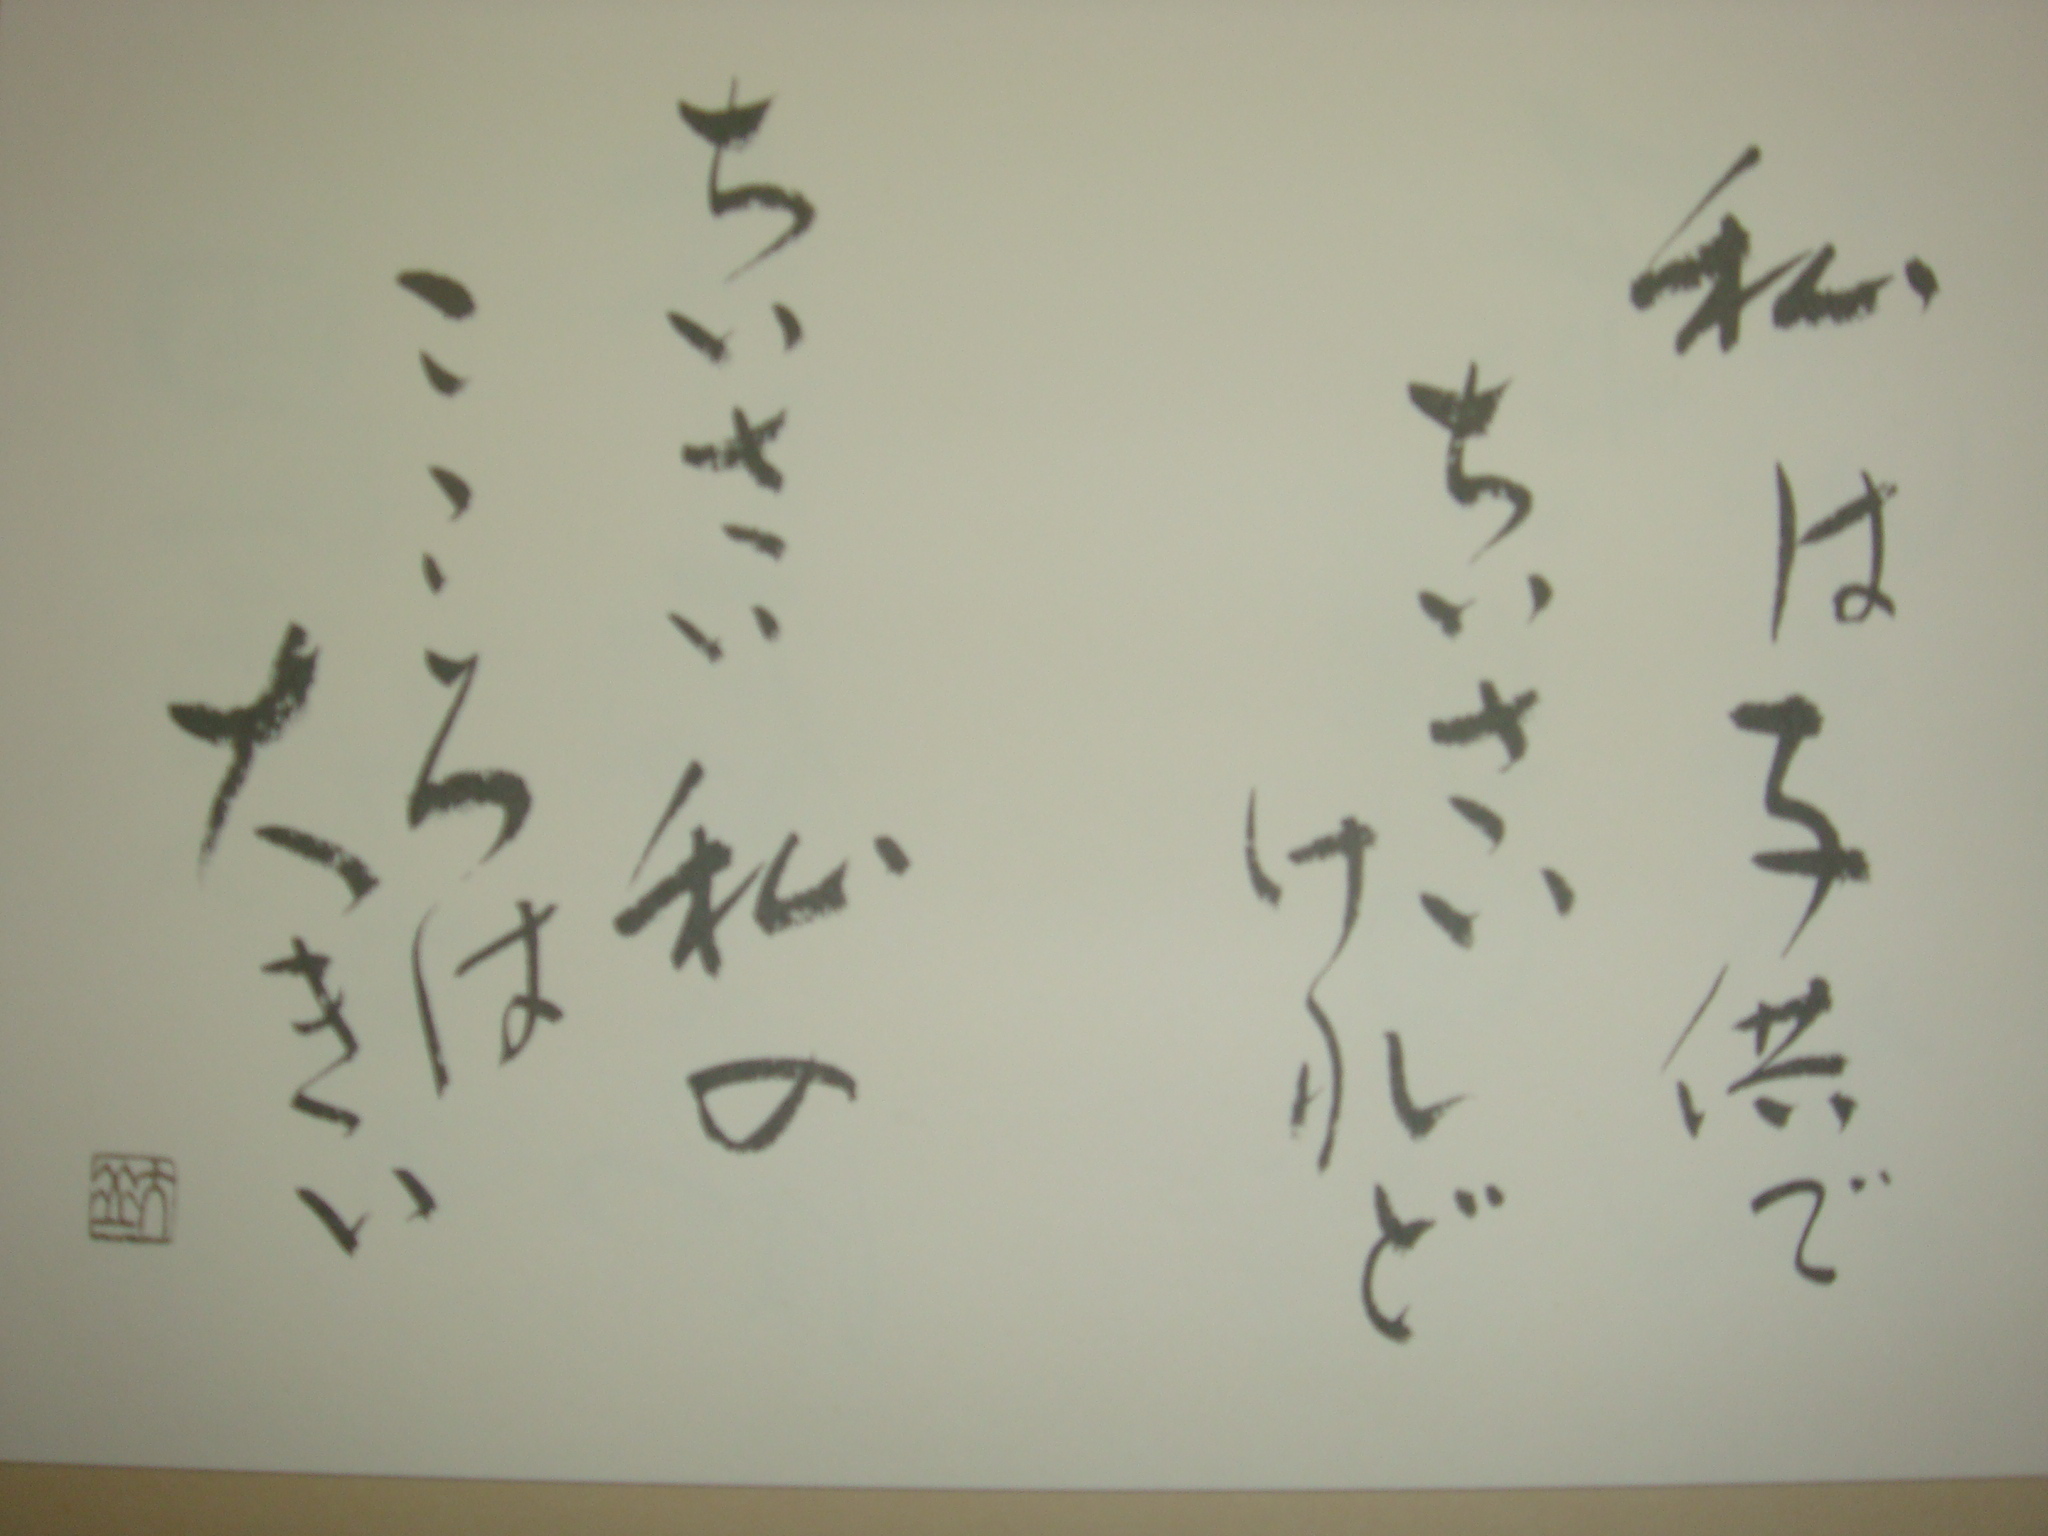 私は子供で
ちいさい
けれど
ちいさい私の
こころは
大きい